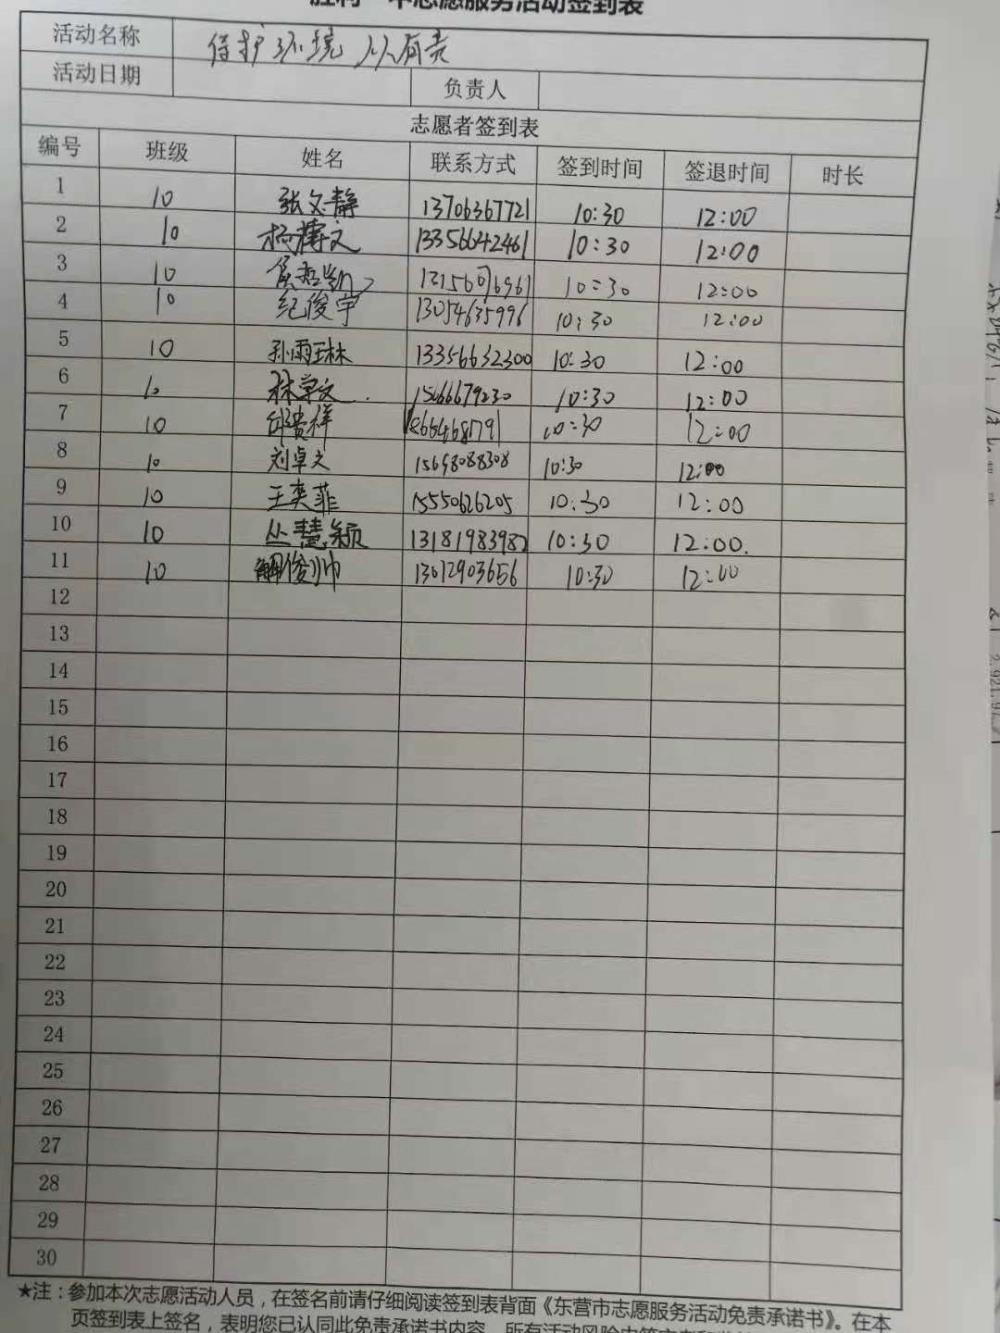 志愿服务活动签到表
活动名称 保护环境 人人有责
活动日期 负责人
志愿者签到表
编号 班级 姓名 联系方式 签到时间 签退时间 时长
1 10 张文静 13706367721 10:30 12:00
2 10 杨博文 13356642461 10:30 12:00
3 10 10:30 12:00
4 10 纪俊宇 13054635996 10:30 12:00
5 10 孙雨琳 13356632300 10:30 12:00
6 10 林宗文 10:30 12:00
7 10 邱贵祥 10:30 12:00
8 10 刘卓文 15698088308 10:30 12:00
9 10 王奕菲 15550626205 10:30 12:00
10 10 丛慧颖 13181983982 10:30 12:00.
11 10 解俊帅 13012903656 10:30 12:00
12
13
14
15
16
17
18
19
20
21
22
23
24
25
26
27
28
29
30
★注：参加本次志愿活动人员，在签名前请仔细阅读签到表背面《东营市志愿服务活动免责承诺书》。在本
页签到表上签名，表明您已认同此免责承诺书内容